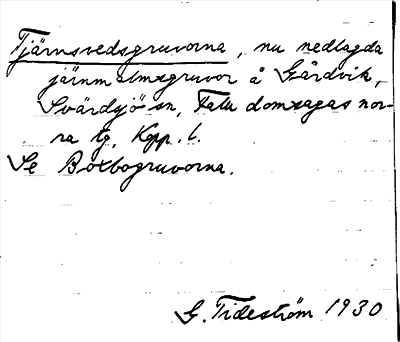 Tjärnsvedsgruvorna, nu nedlagda
järnmalmsgruvor å Gårdvik,
Svärdsjö sn, Falu domsagas nor-
ra tg, Kopp. l.
Se Botbogruvorna.
G. Tideström 1930